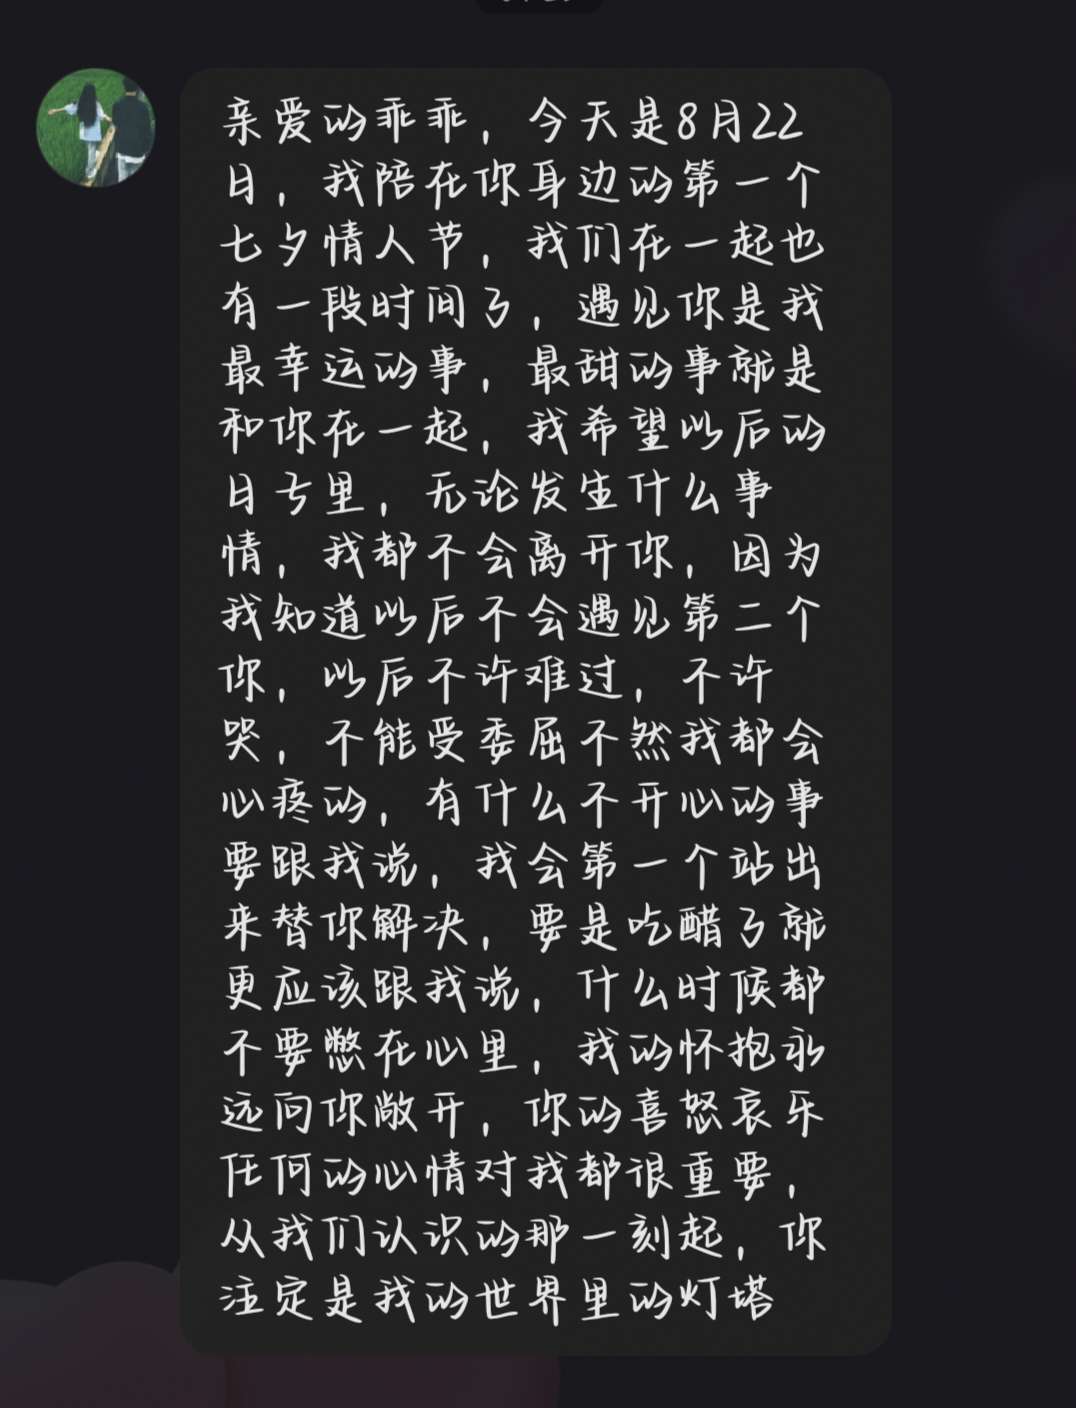 亲爱的乖乖，今天是8月22
日，我陪在你身边的第一个
七夕情人节，我们在一起也
有一段时间了，遇见你是我
最幸运的事，最甜的事就是
和你在一起，我希望以后的
日子里，无论发生什么事
情，我都不会离开你，因为
我知道以后不会遇见第二个
你，以后不许难过，不许
哭，不能受委屈不然我都会
心疼的，有什么不开心的事
要跟我说，我会第一个站出
来替你解决，要是吃醋了就
更应该跟我说，什么时候都
不要憋在心里，我的怀抱永
远向你敞开，你的喜怒哀乐
任何的心情对我都很重要，
从我们认识的那一刻起，你
注定是我的世界里的灯塔